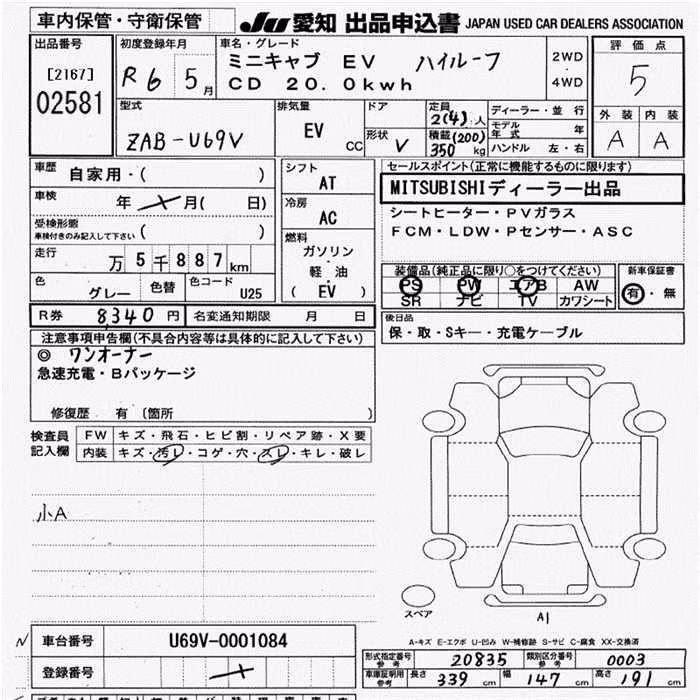 車内保管・守衛保管
JU 愛知 出品申込書 JAPAN USED CAR DEALERS ASSOCIATION
出品番号
[2167]
02581
初度登録年月
R6 5月
車名・グレード
ミニキャブ EV ハイルーフ
CD 20.0kwh
2WD
・
4WD
評価点
5
外装 内装
A A
型式
ZAB-U69V
排気量
EV
CC
ドア
形状
V
定員
2(4)人
積載(200)
350kg
ディーラー・並行
モデル年式 年
ハンドル 左・右
車歴
自家用・( )
車検
年 月( 日)
受検形態
車検付きのみ記入して下さい ( )
走行
万5千887km
色
グレー
色替
色コード
U25
シフト
AT
冷房
AC
燃料
ガソリン・
軽油
(EV)
セールスポイント(正常に機能するものに限ります)
MITSUBISHIディーラー出品
シートヒーター・PVガラス
FCM・LDW・Pセンサー・ASC
装備品(純正品に限り○をつけてください)
PS PW エアB AW
SR ナビ TV カワシート
新車保証書
有・無
R券 8,340円 名変通知期限 月 日
後日品
保・取・Sキー・充電ケーブル
注意事項申告欄(不具合内容等は具体的に記入して下さい)
◎ ワンオーナー
急速充電・Bパッケージ
修復歴 有〔箇所 〕
検査員
記入欄
FW キズ・飛石・ヒビ割・リペア跡・X要
内装 キズ・汚レ・コゲ・穴・スレ・キレ・破レ
小A
スペア
A1
A-キズ E-エクボ U-凹み W-補修跡 S-サビ C-腐食 XX-交換済
N
車台番号 U69V-0001084
登録番号
形式指定番号 参考 20835 類別区分番号 参考 0003
車庫証明用 参考 長さ 339 cm 幅 147 cm 高さ 191 cm